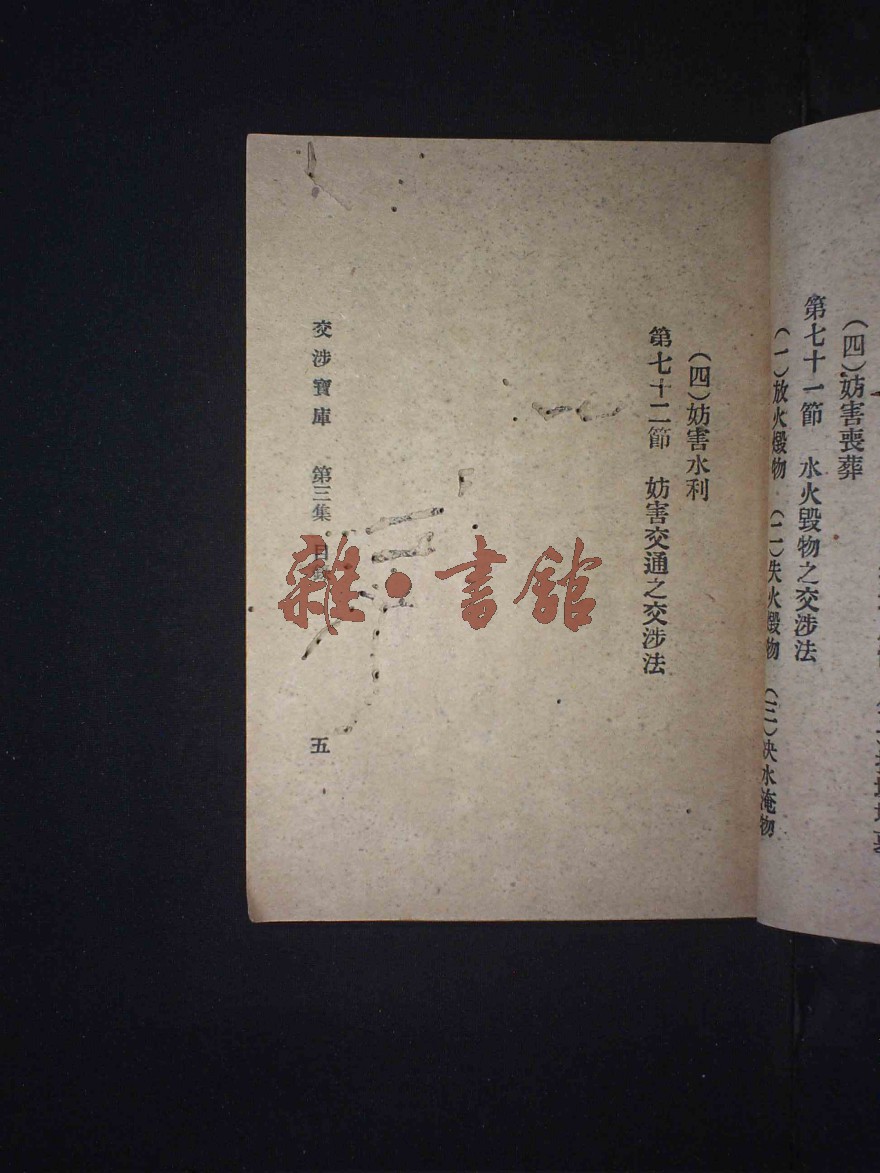 （四）妨害喪葬
第七十一節　水火毀物之交涉法
（一）放火燬物　（二）失火燬物　（三）决水淹物
（四）妨害水利
第七十二節　妨害交通之交涉法
交涉寶庫　第三集　目
五
雜·書館